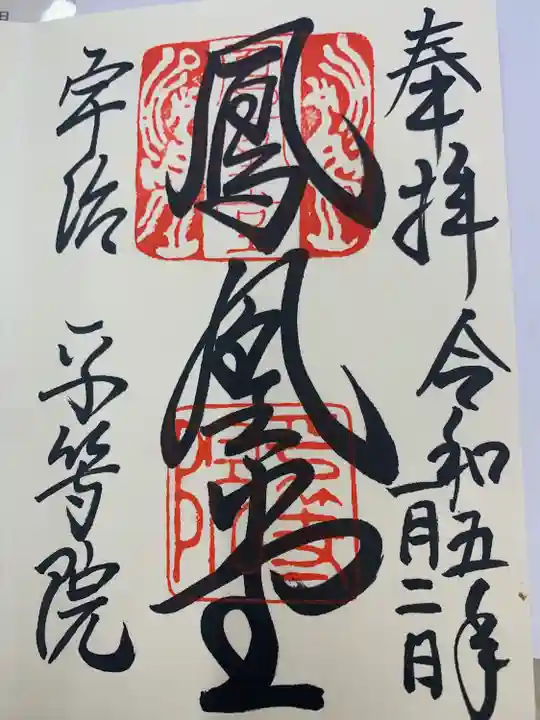 奉拝
令和五年
一月二日
鳳凰堂
宇治
平等院